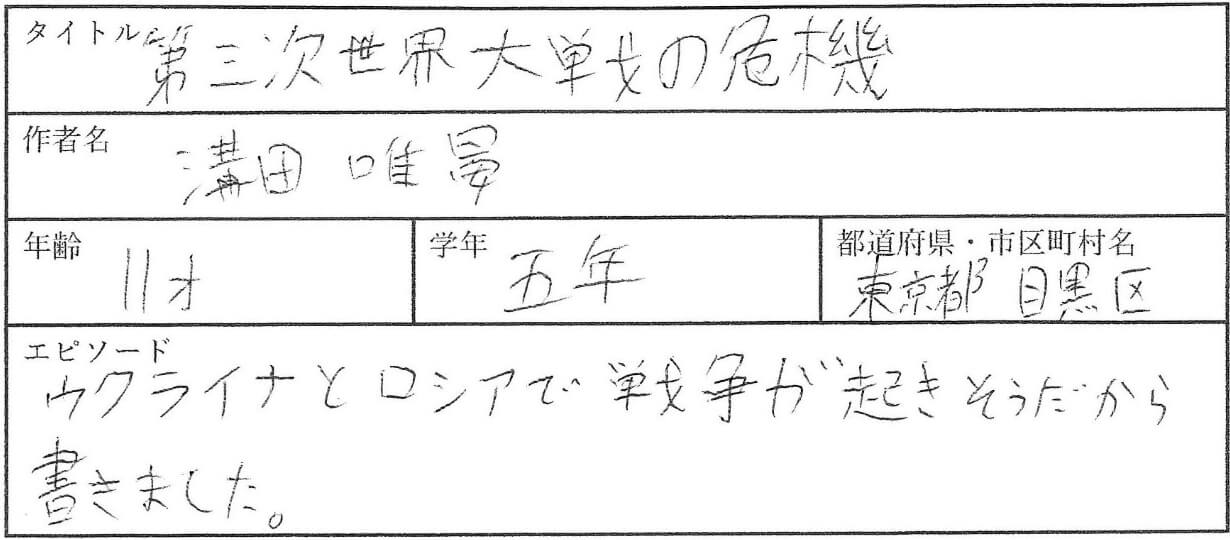 タイトル
第三次世界大戦の危機
作者名
溝田 唯晏
年齢
11才
学年
五年
都道府県・市区町村名
東京都 目黒区
エピソード
ウクライナとロシアで戦争が起きそうだから
書きました。